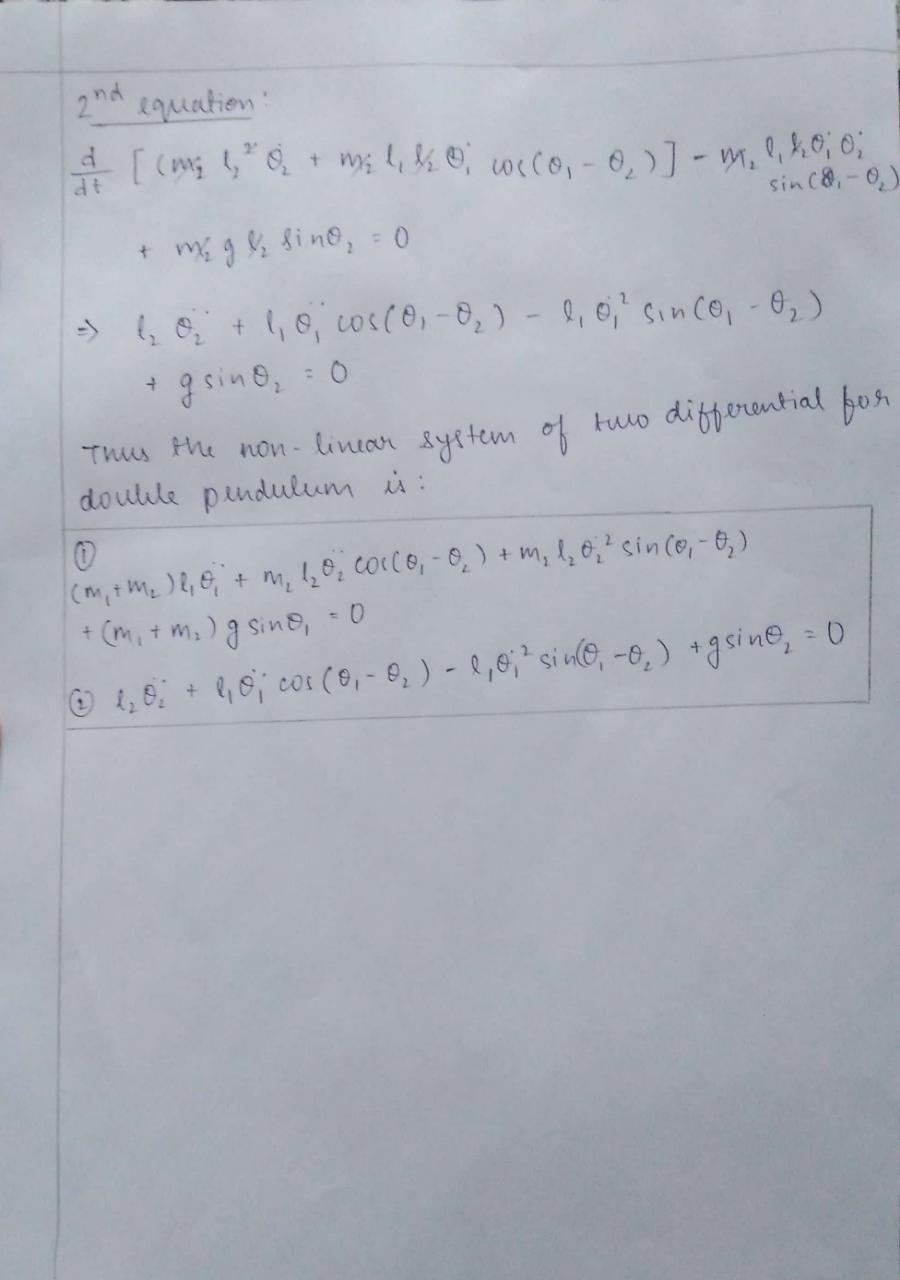 2nd equation:
d/dt [(m₂ l₂² θ̇₂ + m₂ l₁ l₂ θ̇₁ cos(θ₁ - θ₂)] - m₂ l₁ l₂ θ̇₁ θ̇₂
sin(θ₁ - θ₂)
+ m₂ g l₂ sinθ₂ = 0
⇒ l₂ θ̈₂ + l₁ θ̈₁ cos(θ₁ - θ₂) - l₁ θ̇₁² sin(θ₁ - θ₂)
+ g sinθ₂ = 0
Thus the non-linear system of two differential for
double pendulum is:
①
(m₁+m₂)l₁θ̈₁ + m₂ l₂θ̈₂ cos(θ₁ - θ₂) + m₂ l₂ θ̇₂² sin(θ₁ - θ₂)
+ (m₁ + m₂) g sinθ₁ = 0
② l₂θ̈₂ + l₁θ̈₁ cos(θ₁ - θ₂) - l₁θ̇₁² sin(θ₁ - θ₂) + g sinθ₂ = 0